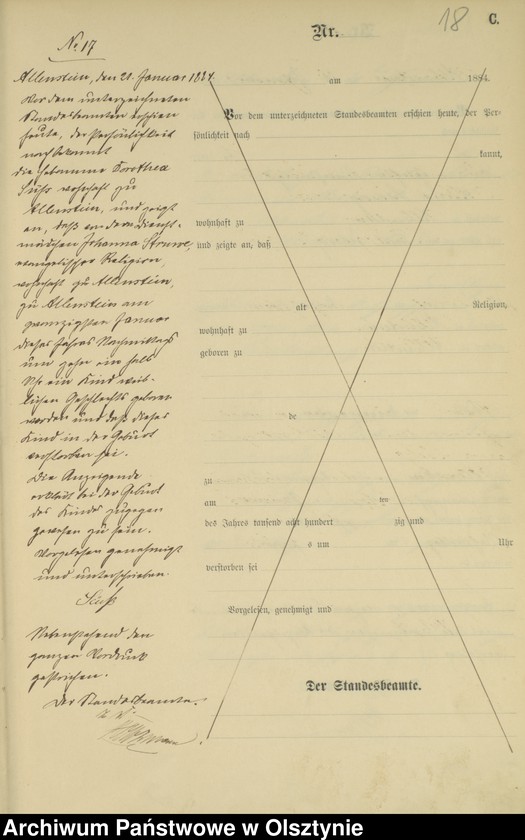 18 C.
Nr.
No 17
Allenstein, den 21. Januar 1884
am 1884.
Vor dem unterzeichneten
Standesbeamten erschien
heute, der Persönlichkeit
nach bekannt
die Hebamme Dorothea
wohnhaft zu
Allenstein, und zeigt
an, daß von dem Dienst-
mädchen Johanna Struwe,
evangelischer Religion,
wohnhaft zu Allenstein,
zu Allenstein am
zwanzigsten Januar
dieses Jahres Nachmittags
um zehn ein halb
Uhr ein Kind weib-
lichen Geschlechts geboren
worden und daß dieses
Kind in der Geburt
verstorben sei.
Die Anzeigende
erklärt bei der Geburt
des Kindes zugegen
gewesen zu sein.
Vorgelesen genehmigt
und unterschrieben.
Nebenstehend den
ganzen Vordruck
gestrichen.
Der Standesbeamte.
Vor dem unterzeichneten Standesbeamten erschien heute, der Per-
sönlichkeit nach
kannt,
wohnhaft zu
und zeigte an, daß
alt Religion,
wohnhaft zu
geboren zu
de
zu
am ten
des Jahres tausend acht hundert zig und
s um Uhr
verstorben sei
Vorgelesen, genehmigt und
Der Standesbeamte.
Archiwum Państwowe w Olsztynie